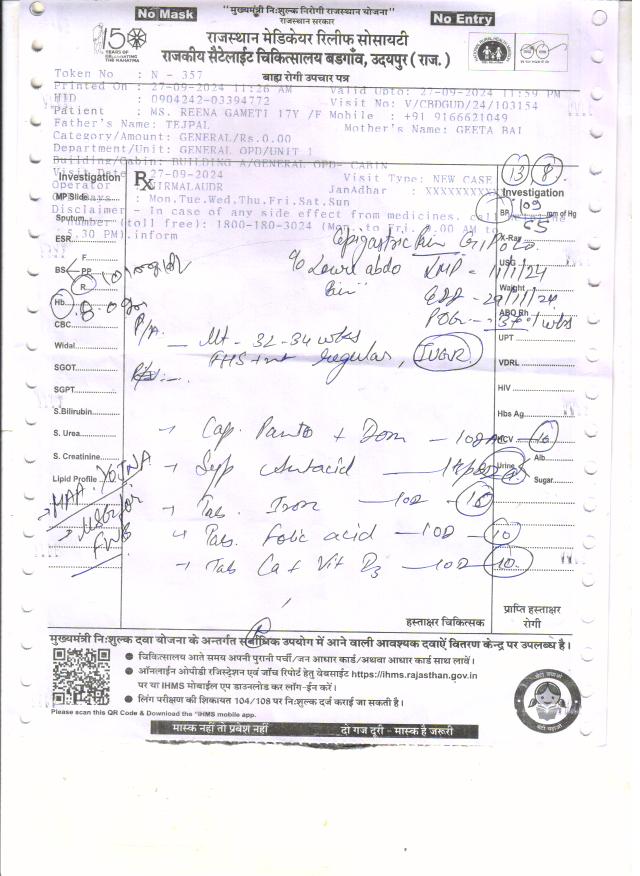 No Mask
"मुख्यमंत्री निःशुल्क निरोगी राजस्थान योजना"
राजस्थान सरकार
No Entry
राजस्थान मेडिकेयर रिलीफ सोसायटी
राजकीय सैटेलाईट चिकित्सालय बडगाँव, उदयपुर ( राज. )
बाह्य रोगी उपचार पत्र
150
YEARS OF
CELEBRATING
THE MAHATMA
Token No : N - 357
Printed On : 27-09-2024 11:26 AM Valid Upto: 27-09-2024 11:59 PM
HID : 0904242-03394772 Visit No: V/CBDGUD/24/103154
Patient : MS. REENA GAMETI 17Y /F Mobile : +91 9166621049
Father's Name: TEJPAL Mother's Name: GEETA BAI
Category/Amount: GENERAL/Rs.0.00
Department/Unit: GENERAL OPD/UNIT 1
Building/Cabin: BUILDING A/GENERAL OPD- CABIN
Visit Date : 27-09-2024 Visit Type: NEW CASE
Operator : NIRMALAUDR JanAadhar : XXXXXXXXXX
Days : Mon.Tue.Wed.Thu.Fri.Sat.Sun
Disclaimer - In case of any side effect from medicines, call
number (toll free): 1800-180-3024 (Mon. to Fri. AM to
5.30 PM).inform
Rx
13 8
Investigation
MP Slide
Sputum
ESR
F
BS PP
R
Hb 8.0 gm
CBC
Widal
SGOT
SGPT
S.Bilirubin
S. Urea
S. Creatinine
Lipid Profile
MAA YOJNA
FWB
Investigation
BP 109 mm of Hg
65
X-Ray
USG
Weight
ABO Rh
UPT
VDRL
HIV
Hbs Ag
HCV
Urine Alb
Sugar
Epigastric Pain
c/o Lower abdo LMP - 1/1/24
Pain
P/A.
Ut - 32-34 wks
FHS + nt regular, IUGR
→ Cap. Panto + Dom - 10
→ Syp Antacid
→ Tab. Iron - 10D - 10
→ Tab. Folic acid - 10D - 10
→ Tab Ca + Vit D3 - 10D - 10
हस्ताक्षर चिकित्सक
प्राप्ति हस्ताक्षर
रोगी
मुख्यमंत्री निःशुल्क दवा योजना के अन्तर्गत सर्वाधिक उपयोग में आने वाली आवश्यक दवाऐं वितरण केन्द्र पर उपलब्ध है।
● चिकित्सालय आते समय अपनी पुरानी पर्ची/जन आधार कार्ड/अथवा आधार कार्ड साथ लावें।
● ऑनलाईन ओपीडी रजिस्ट्रेशन एवं जॉच रिपोर्ट हेतु वेबसाईट https://ihms.rajasthan.gov.in
पर या IHMS मोबाईल एप डाउनलोड कर लॉग-ईन करें।
● लिंग परीक्षण की शिकायत 104/108 पर निःशुल्क दर्ज कराई जा सकती है।
Please scan this QR Code & Download the "IHMS mobile app.
मास्क नहीं तो प्रवेश नहीं दो गज दूरी - मास्क है जरूरी
बेटी बचाओ
बेटी पढ़ाओ